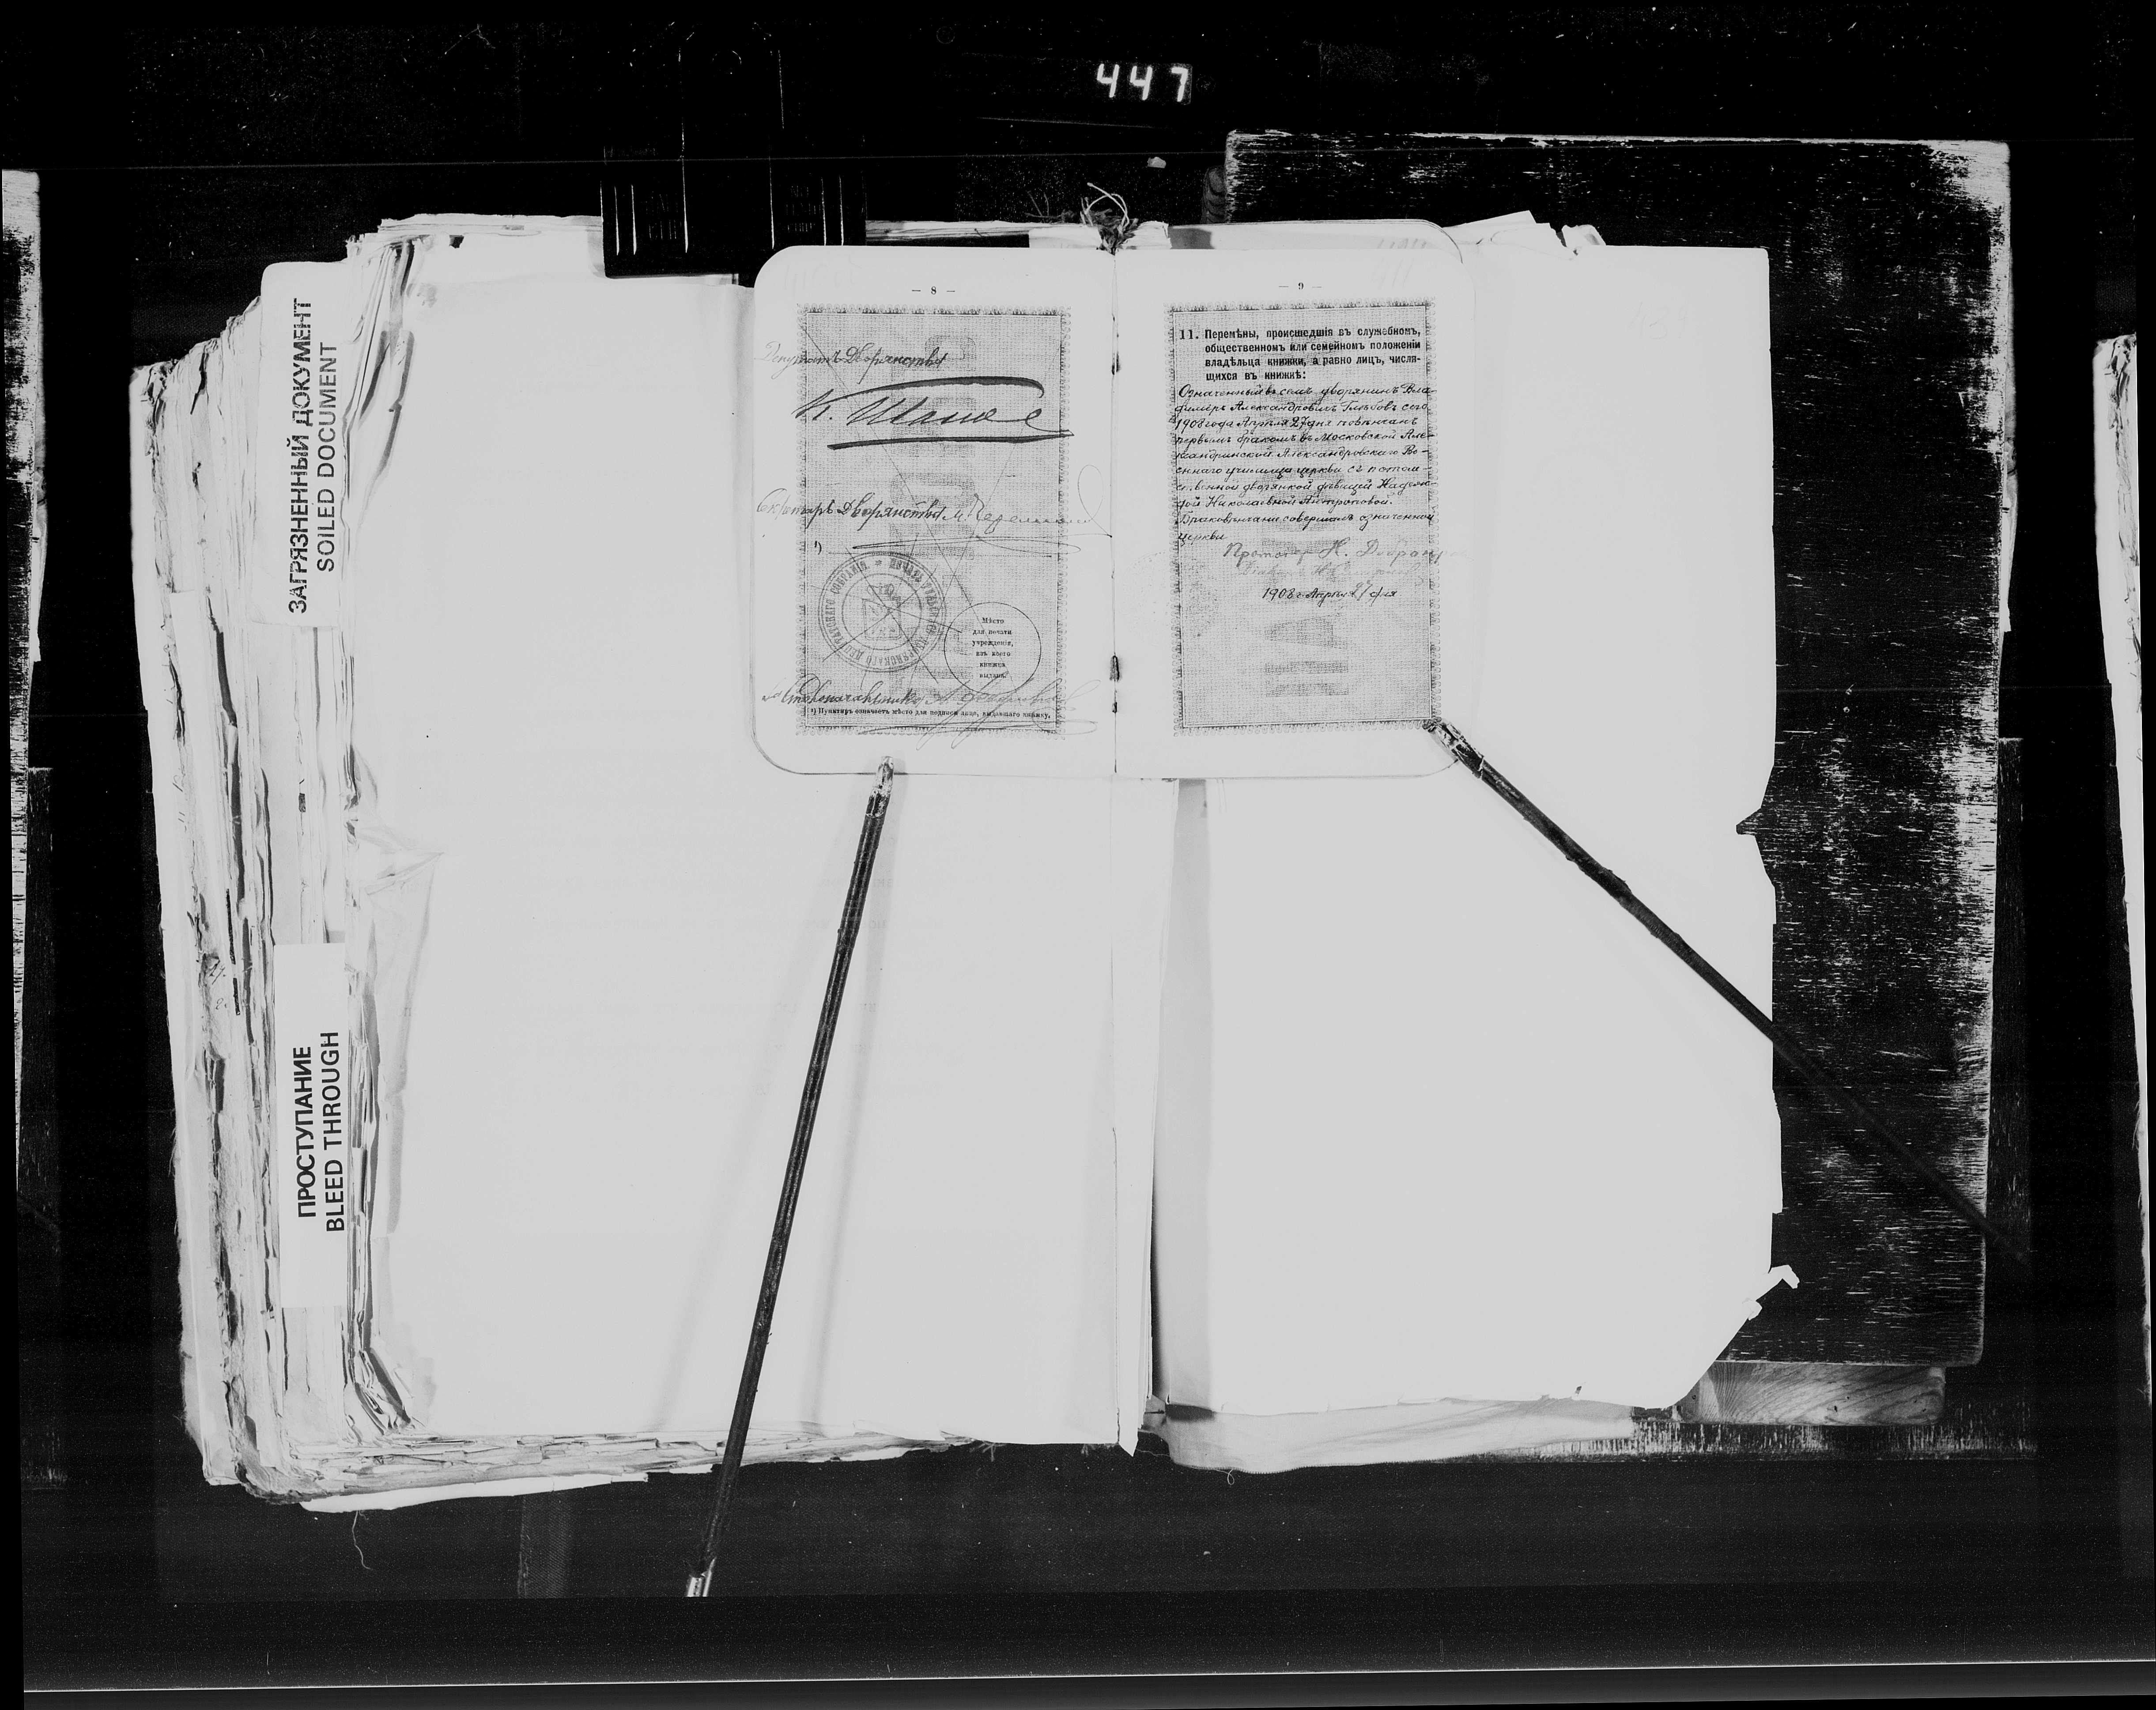 447
ЗАГРЯЗНЕННЫЙ ДОКУМЕНТ
SOILED DOCUMENT
ПРОСТУПАНИЕ
BLEED THROUGH
— 8 —
Депутатъ Дворянства
К.
Секретарь Дворянства М.
¹)
Мѣсто
для печати
учрежденія,
изъ коего
книжка
выдана.
Дѣлопроизводитель
¹) Пунктиръ означаетъ мѣсто для подписи лица, выдающаго книжку.
— 9 —
11. Перемѣны, происшедшія въ служебномъ,
общественномъ или семейномъ положеніи
владѣльца книжки, а равно лицъ, числя-
щихся въ книжкѣ:
Означенный въ семъ дворянинъ Вла-
димиръ Александровичъ Глѣбовъ сего
1908 года Апрѣля 27 дня повѣнчанъ
первымъ бракомъ въ Московской Але-
ксандринской Александровскаго Во-
еннаго училища церкви съ потом-
ственной дворянкой дѣвицей Надеж-
дой Николаевной Антроповой.
Браковѣнчаніе совершалъ означенной
церкви
Протоіерей Н.
1908 г. Апрѣля 27 дня